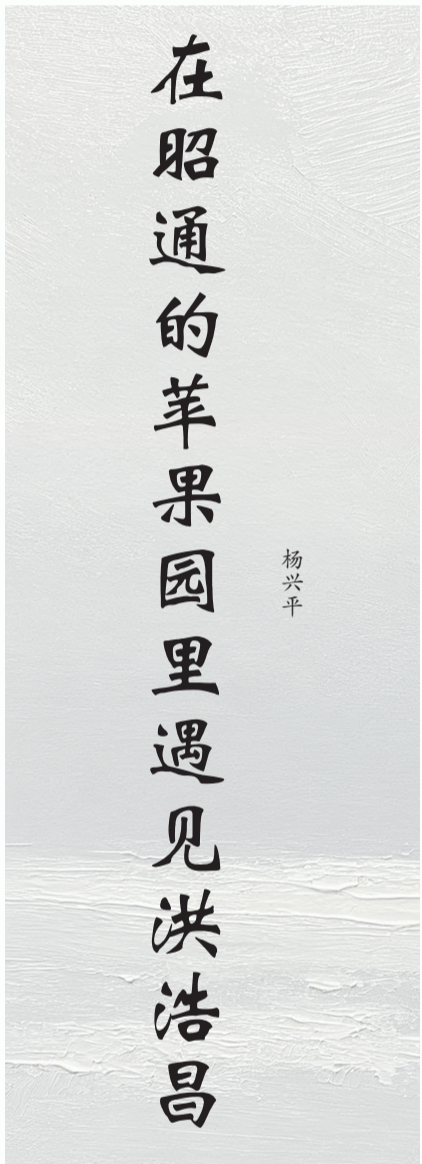 在昭通的苹果园里遇见洪浩昌
杨兴平